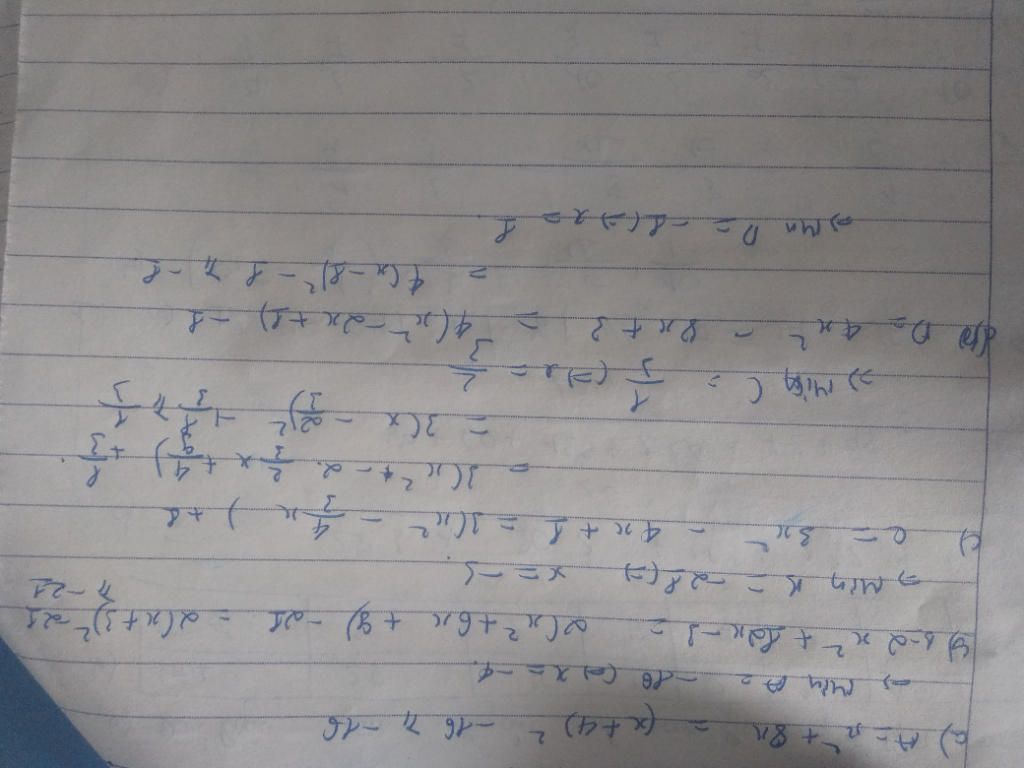 a) A = x² + 8x = (x + 4)² - 16 ≥ -16
=> Min A = -16 (=) x = -4.
b) B = 2x² + 12x - 3 = 2(x² + 6x + 9) - 21 = 2(x + 3)² - 21
≥ -21
=> Min B = -21 (=) x = -3
c) C = 3x² - 4x + 1 = 3(x² - 4/3 x ) + 1
= 3(x² - 2. 2/3 x + 4/9) + 1/3 .
= 3(x - 2/3)² - 1/3 ≥ 1/3
=> Min C = 1/3 (=) x = 2/3
D = 4x² - 8x + 3 = 4(x² - 2x + 1) - 1
= 4(x - 1)² - 1 ≥ -1
=> Min D = -1 (=) x = 1